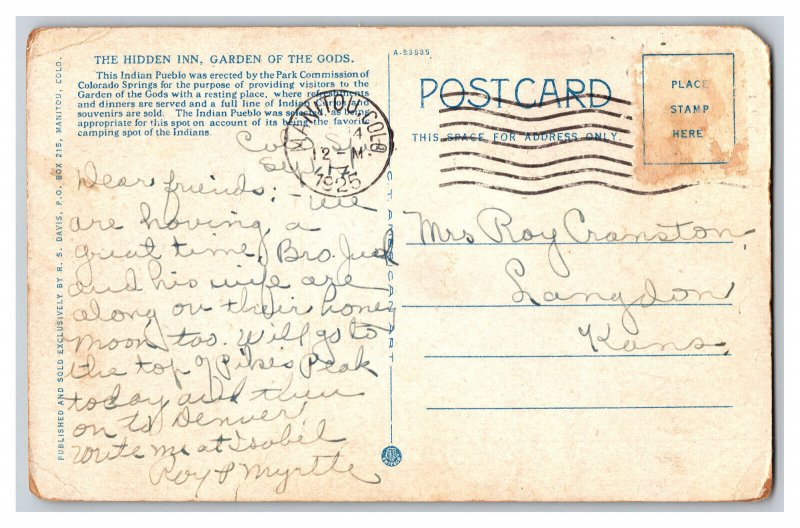 THE HIDDEN INN, GARDEN OF THE GODS.
This Indian Pueblo was erected by the Park Commission of
Colorado Springs for the purpose of providing visitors to the
Garden of the Gods with a resting place, where refreshments
and dinners are served and a full line of Indian Curios and
souvenirs are sold. The Indian Pueblo was selected, as being
appropriate for this spot on account of its being the favorite
camping spot of the Indians.
PUBLISHED AND SOLD EXCLUSIVELY BY R. S. DAVIS, P.O. BOX 215, MANITOU, COLO.
A-83535
POSTCARD
THIS SPACE FOR ADDRESS ONLY.
PLACE
STAMP
HERE
MANITOU, COLO.
4
12-M
1925
Dear friends: We
are having a
great time, Bro. Jud
and his wife are
along on their honey
moon too. Will go to
the top of Pikes Peak
today and then
on to Denver
Write me at Isabel
Roy & Myrtle
Mrs Roy Cranston
Langdon
Kans.